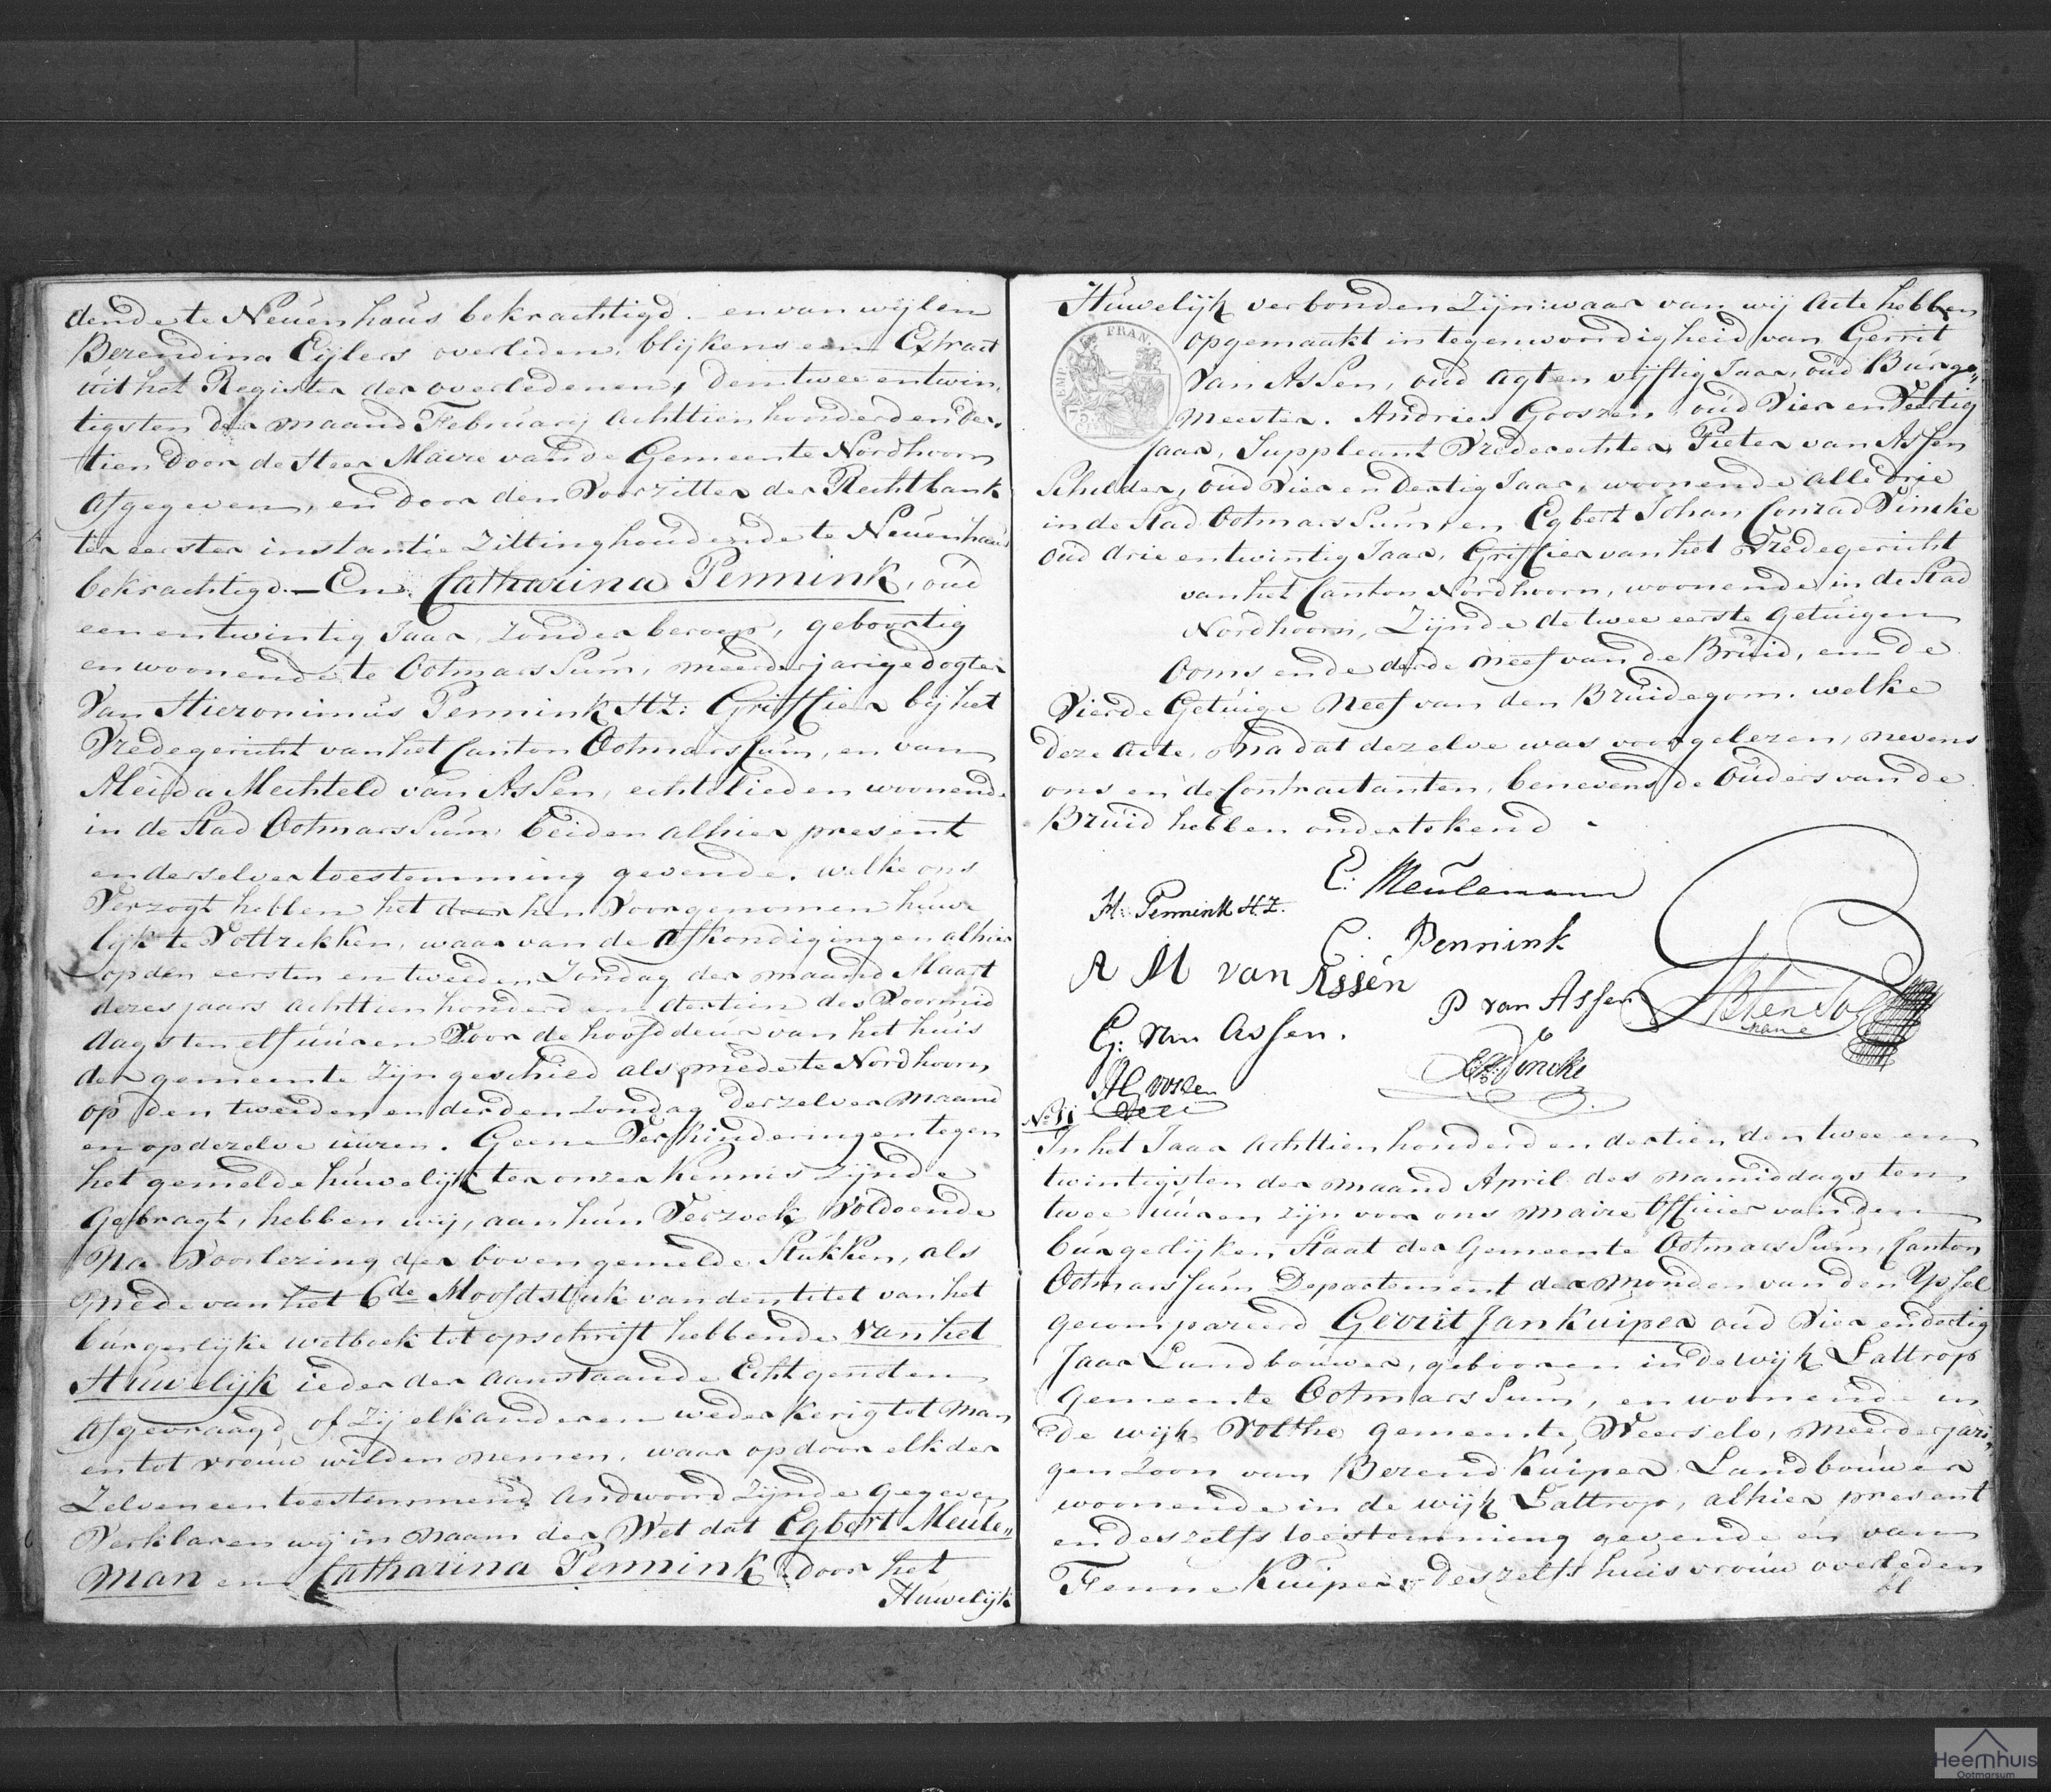 dende te Neuenhaus bekrachtigd. - en van wijlen
Berendina Eijlers overleden, blijkens een Extract
uit het Register der overledenen, den twee entwin,
tigsten der maand Februarij achttien honderd en der,
tien door de Heer Maire van de Gemeente Nordhoorn
afgegeven, en door den Voorzitter der Rechtbank
ter eerster instantie Zittinghoudende te Neuenhaus
bekrachtigd. — En Catharina Pennink, oud
een entwintig Jaar, zonder beroep, geboortig
en woonende te Ootmarssum, meerderjarige dogter
Van Hieronimus Pennink HZ: Griffier bij het
Vredegericht van het Canton Ootmarssum, en van
Aleida Mechteld van Assen, echtelieden woonende
in de Stad Ootmarssum beiden alhier present
en derselver toestemming gevende. welke ons
Verzogt hebben het door hen Voorgenomen huwe
lijk te Voltrekken, waar van de afkondigingen alhier
op den eersten en tweeden Zondag der maand Maart
dezes jaars achttien honderd en dertien des Voormid
dags ten elf uuren Voor de hoofddeur van het huis
der gemeente zijn geschied als mede te Nordhoorn
op den tweeden en derden Zondag derzelver maand
en op dezelve uuren. Geene Verhinderingen tegen
het gemelde huwelijk ter onzer Kennis zijnde
Gebragt, hebben wij, aan hun Verzoek Voldoende
Na Voorlezing der boven gemelde Stukken, als
mede van het 6de Hoofdstuk van den titel van het
burgerlyke wetboek tot opschrift hebbende Van het
Huwelijk ieder der aanstaande Echtgenoten
Afgevraagd of zij elkanderen wederkerig tot man
en tot vrouw wilden nemen, waar op door elk der
Zelven een toestemmend andwoord zijnde gegeven
Verklaren wij in naam der Wet dat Egbert Meule„
man en Catharina Pennink door het
Huwelijk
Huwelijk verbonden zijn: waar van wij acte hebben
opgemaakt in tegenwoordigheid van Gerrit
Van Assen, oud agt en vijftig Jaar, oud Burge„
meester. Andries Goossen, oud Vier en Veertig
Jaar, Suppleant Vrederechter, Pieter van Assen
Schilder, oud Vier en dertig Jaar, woonende alle drie
in de Stad Ootmarssum, en Egbert Johan Conrad Vincke
oud drie entwintig Jaar, Griffier van het Vredegericht
van het Canton Nordhoorn, woonende in de Stad
Nordhoorn, Zijnde de twee eerste getuigen
Ooms en de derde Neef van de Bruid, en de
Vierde Getuige Neef van den Bruidegom. welke
deze acte, nadat dezelve was voorgelezen, nevens
ons en de Contractanten, benevens de Ouders van de
Bruid hebben ondertekend -
EMP. FRAN.
E: Meulemann
H: Pennink HZ.
C: Pennink
A M van Assen
P van Assen
maire
G: van Assen.
Vincke
No 11
In het Jaar achttien honderd en dertien den twee en
twintigsten der maand April des namiddags ten
twee uuren zijn voor ons maire Officier van den
burgerlijken Staat der Gemeente Ootmarssum, Canton
Ootmarssum Departement der Monden van den Yssel
gecompareerd Gerrit Jan Kuiper oud Vier en dertig
Jaar Landbouwer, gebooren in de wijk Lattrop
Gemeente Ootmarssum, en woonende in
de wijk Volthe gemeente Weerselo, meerderjari„
gen zoon van Berend Kuiper Landbouwer
woonende in de wijk Lattrop, alhier present
en deszelfs toestemming gevende en van
Fenne Kuipers deszelfs huisvrouw overleden
Heemhuis
Ootmarsum